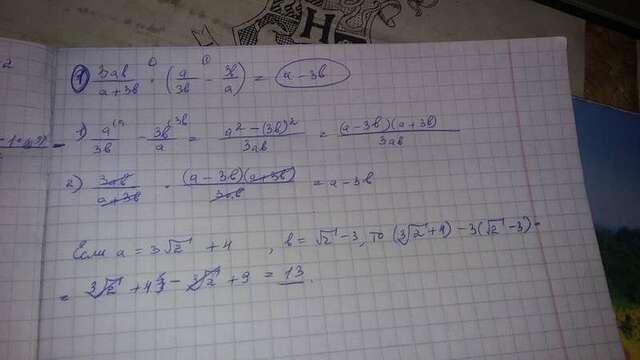 1) 3ab/(a+3b) · (a/3b − 3b/a) = a−3b
1) a/3b − 3b/a = (a² − (3b)²)/3ab = (a−3b)(a+3b)/3ab
2) 3ab/(a+3b) · (a−3b)(a+3b)/3ab = a−3b
Если a = 3√2 + 4, b = √2 − 3, то (3√2+4) − 3(√2 − 3) =
= 3√2 + 4 − 3√2 + 9 = 13.
H